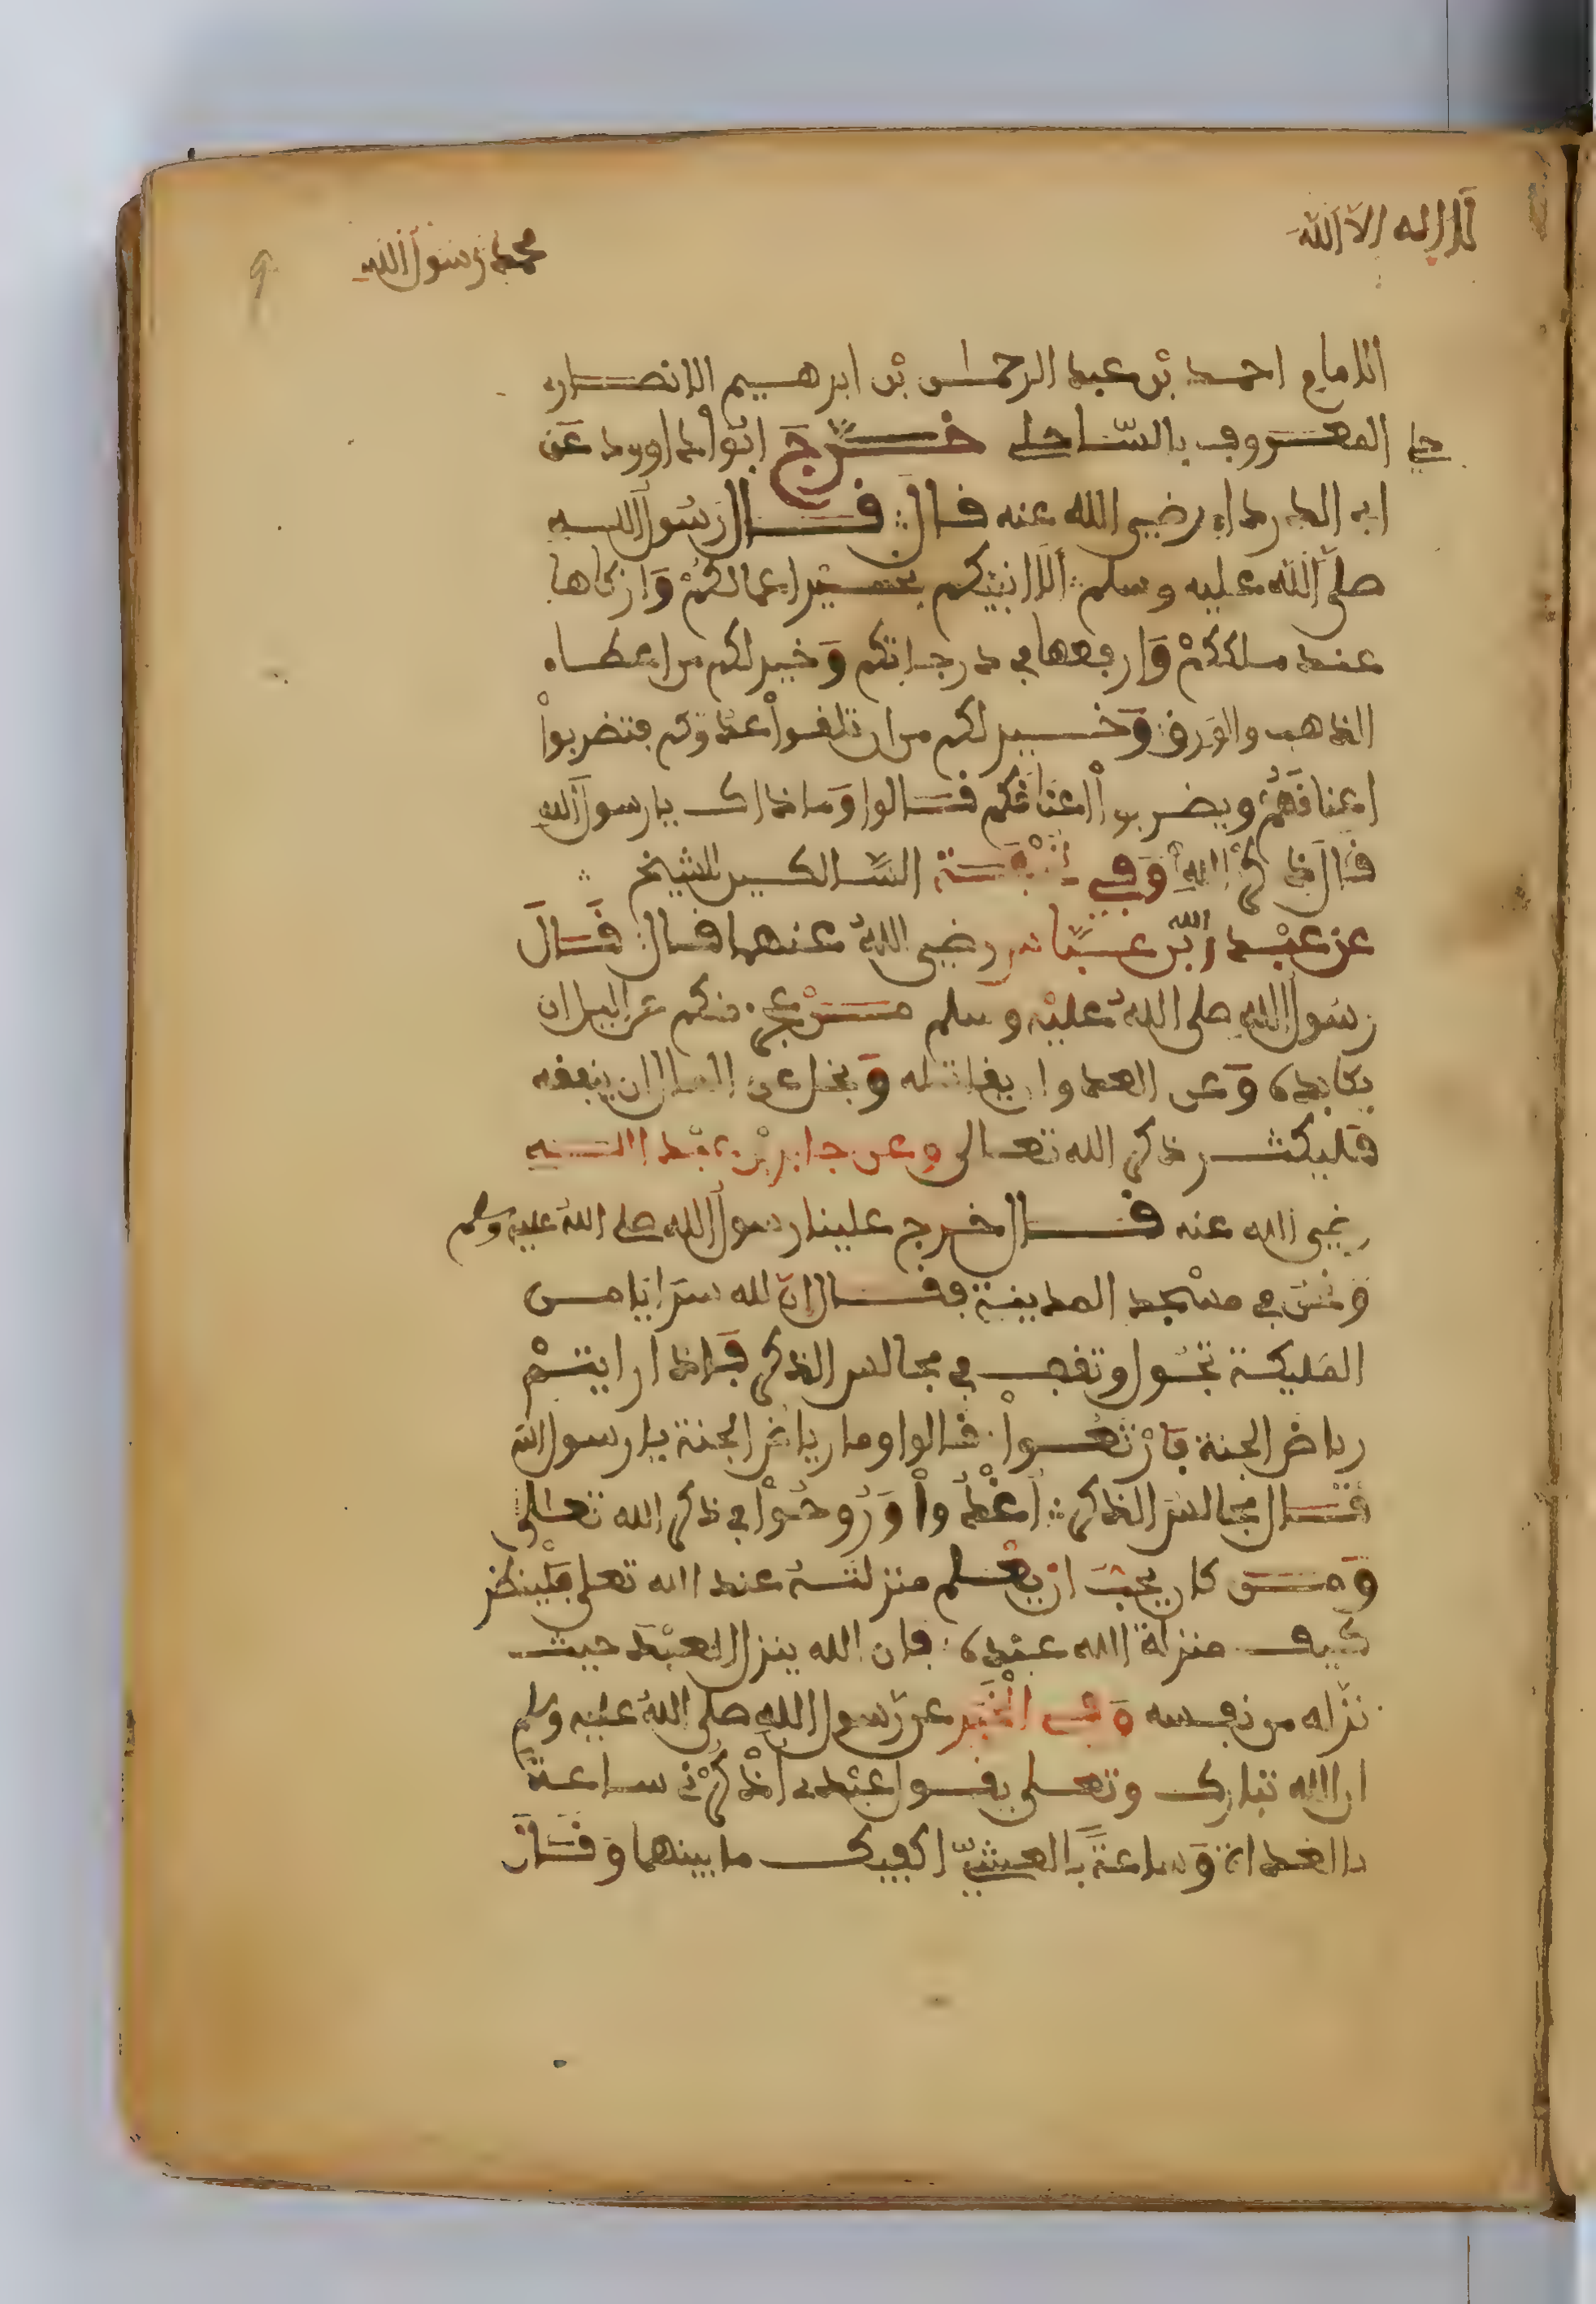 لا اله الا الله
محمد رسول الله
9
الامام احمد بن عبد الرحمان بن ابرهيم الانصاري
المعروف بالساحلي خرج ابوا داوود عن
ابي الدرداء رضي الله عنه قال قال رسول الله
صلى الله عليه وسلم الا انبيكم بخير اعمالكم وازكاها
عند مليككم وارفعها في درجاتكم وخير لكم من اعطاء
الذهب والورق وخير لكم من ان تلقوا عدوكم فتضربوا
اعناقهم ويضربوا اعناقكم قالوا وما ذاك يا رسول الله
قال ذكر الله وفي السالكين للشيخ
عن عبد الله بن عباس رضي الله عنهما قال قال
رسول الله صلى الله عليه وسلم من عجز منكم عن اليل ان
يكابده وعن العدو ان يقاتله وبخل عن المال ان ينفقه
فليكثر ذكر الله تعالى وعن جابر بن عبد الله
رضي الله عنه قال خرج علينا رسول الله صلى الله عليه وسلم
ونحن في مسجد المدينة فقال ان لله سرايا من
المليكة تجول وتقف في مجالس الذكر فاذا رايتم
رياض الجنة فارتعوا قالوا وما رياض الجنة يا رسول الله
قال مجالس الذكر اغدوا وروحوا في ذكر الله تعلى
ومن كان يحب ان يعلم منزلته عند الله تعلى فلينظر
كيف منزلة الله عنده فان الله ينزل العبد حيث
نزله من نفسه وفي الخبر عن رسول الله صلى الله عليه وسلم
ان الله تبارك وتعلى يقول عبدي اذكرني ساعة
بالغداة وساعة بالعشي اكفيك ما بينهما وقال